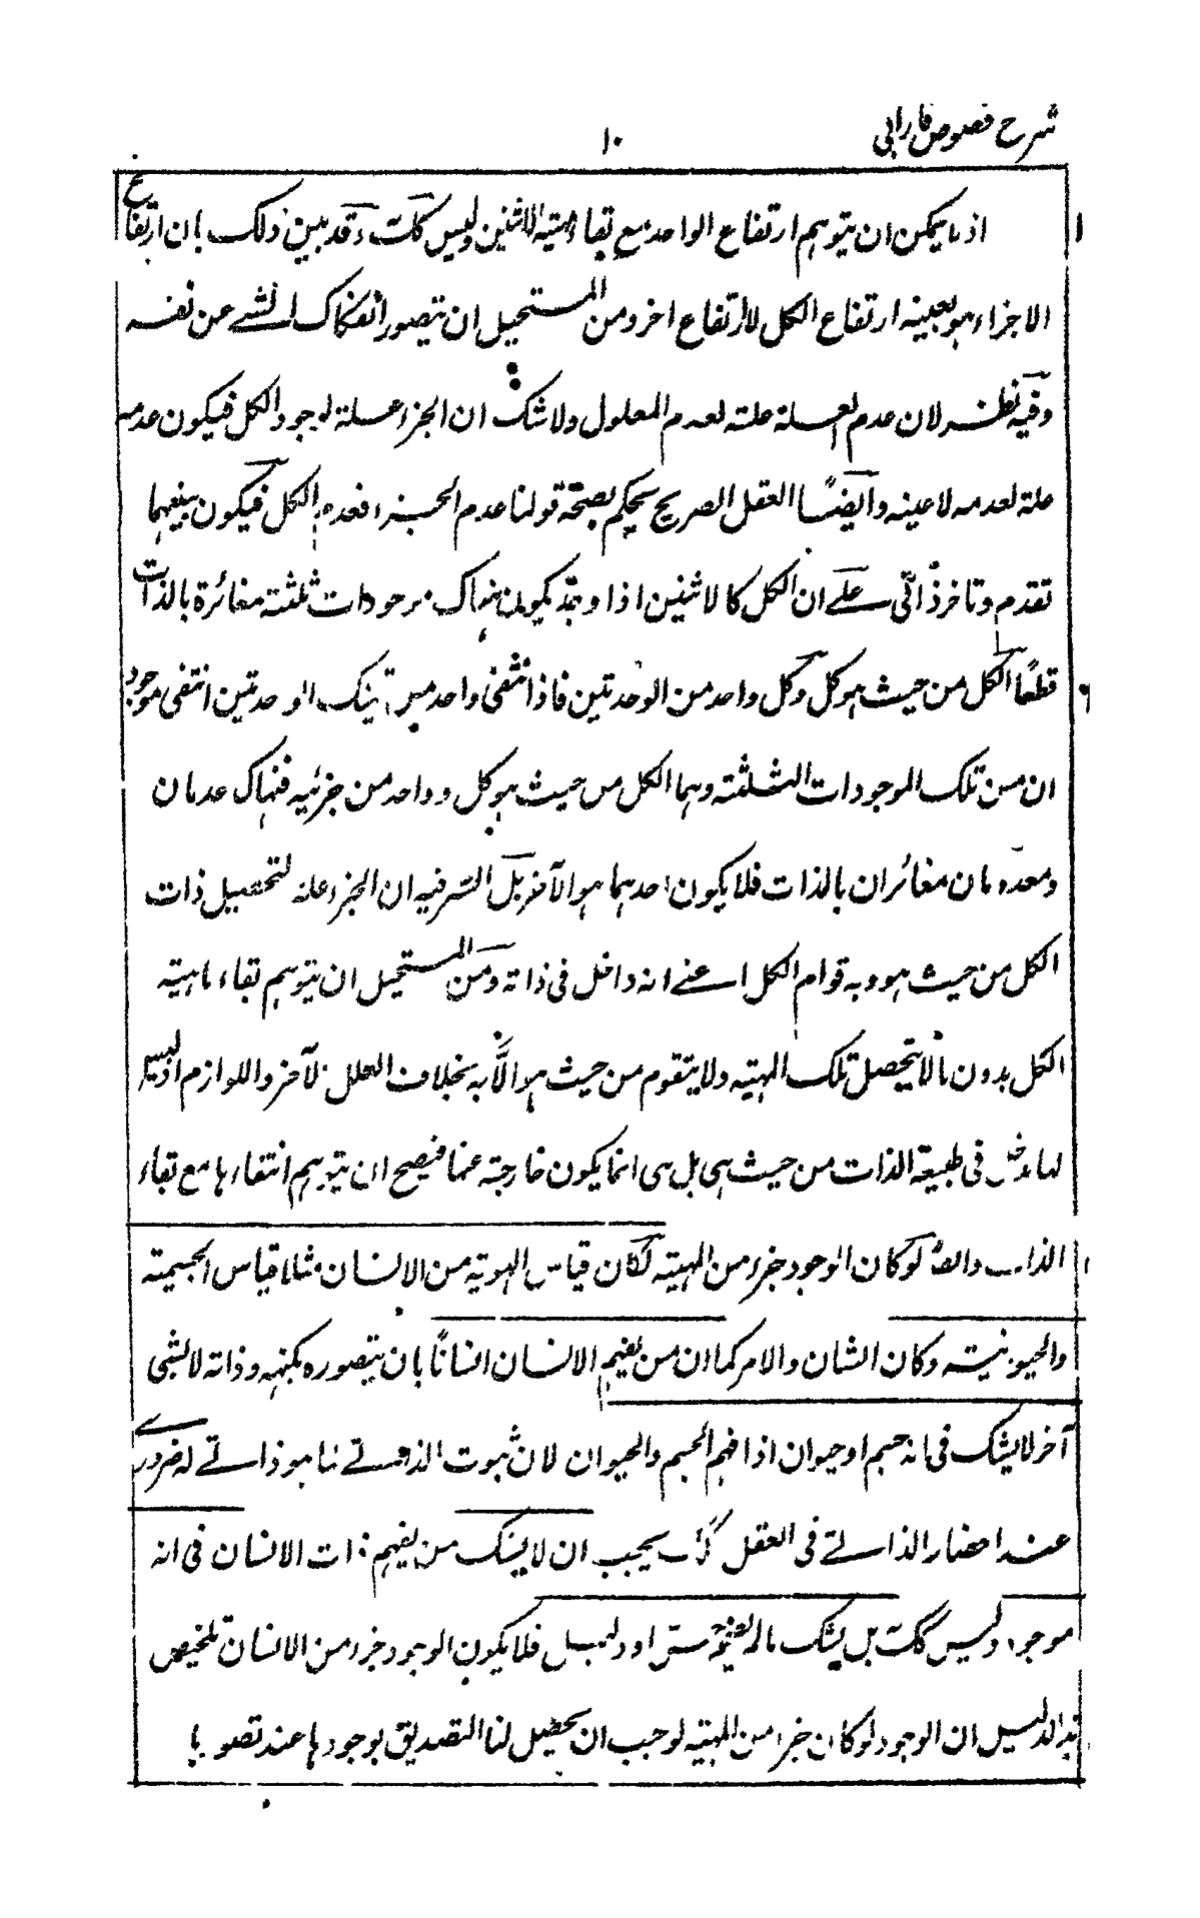 شرح فصوص فارابی
١٠
اذ لا يمكن ان يتوهم ارتفاع الواحد مع بقاء مهية الاثنين وليس كك وقد بين ذلك بان ارتفاع
الاجزاء هو بعينه ارتفاع الكل لا ارتفاع اخر ومن المستحيل ان يتصور انفكاك الشے عن نفسه
وفيه نظر لان عدم العلة علة لعدم المعلول ولا شك ان الجزء علة لوجود الكل فيكون عدمه
علة لعدمه لا عينه وايضًا العقل الصريح يحكم بصحة قولنا عدم الجزء فعدم الكل فيكون بينهما
تقدم وتاخر ذاتي علے ان الكل كالاثنين اذا وجد يكون هناك موجودات ثلثة مغائرة بالذات
قطعًا الكل من حيث هو كل وكل واحد من الوحدتين فاذا انتفى واحد من تينك الوحدتين انتفى موجود
ان من تلك الموجودات الثلثة وهما الكل من حيث هو كل وواحد من جزئيه فهناك عدمان
ومعدومان مغائران بالذات فلا يكون احدهما هو الآخر بل السر فيه ان الجزء علة لتحصيل ذات
الكل من حيث هو وبه قوام الكل اعنے انه داخل فى ذاته ومن المستحيل ان يتوهم بقاء ماهية
الكل بدون ما لا يتحصل تلك المهية ولا يتقوم من حيث هو الا به بخلاف العلل الآخر واللوازم اذ ليس
لها دخل فى طبيعة الذات من حيث هى بل هى انما يكون خارجة عنها فيصح ان يتوهم انتفاءها مع بقاء
الذات وايضًا لو كان الوجود جزء من المهية لكان قياس الهوية من الانسان مثلا قياس الجسمية
والحيوانية وكان الشان والامر كما ان من يفهم الانسان انسانًا بان يتصوره بكنهه وذاته لا بشى
آخر لا يشك فى انه جسم او حيوان اذا فهم الجسم والحيوان لان ثبوت الذاتے لما هو ذاتے له ضرورے
عند احضار الذاتے فى العقل كك يجب ان لا يشك من يفهم ذات الانسان فى انه
موجود وليس كك بل يشك ما لم يقم حس او دليل فلا يكون الوجود جزء من الانسان تلخيص
هذا الدليل ان الوجود لو كان جزء من المهية لوجب ان يحصل لنا التصديق بوجودها عند تصورها